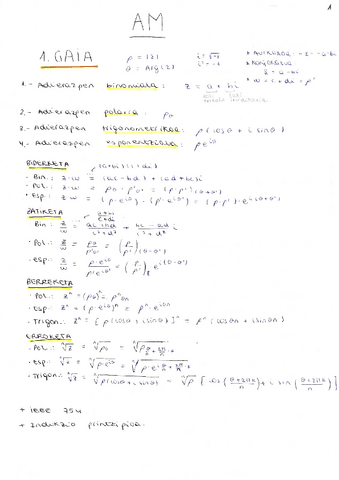 1
AM
1. GAIA
ρ = |z|
θ = Arg(z)
i = √-1
i² = -1
* Aurkakoa: -z = -a-bi
* Konjokatua:
z̄ = a - bi
1.- Adierazpen binomiala: z = a + bi
2.- Adierazpen polarra: ρθ
3.- Adierazpen trigonometrikoa: ρ(cosθ + i sinθ)
4.- Adierazpen esponentziala: ρe^iθ
BIDERKETA
(a+bi)(c+di)
- Bin: z·w = (ac-bd) + (ad+bc)i
- Pol.: z·w = ρθ·ρ'θ' = (ρ·ρ')(θ+θ')
- Esp.: z·w = (ρ·e^iθ)·(ρ'·e^iθ') = (ρ·ρ')·e^i(θ+θ')
ZATIKETA
(a+bi)/(c+di)
- Bin: z/w = (ac+bd)/(c²+d²) + (bc-ad)/(c²+d²) i
- Pol.: z/w = ρθ/ρ'θ' = (ρ/ρ')(θ-θ')
- Esp.: z/w = ρ·e^iθ/ρ'·e^iθ' = (ρ/ρ') e^i(θ-θ')
BERREKETA
- Pol.: zⁿ = (ρθ)ⁿ = ρⁿθn
- Esp.: zⁿ = (ρ·e^iθ)ⁿ = ρⁿ·e^iθn
- Trigon.: zⁿ = [ρ(cosθ + i sinθ)]ⁿ = ρⁿ(cosθn + i sinθn)
ERROKETA
- Pol.: ⁿ√z = ⁿ√ρθ =
- Esp.: ⁿ√z = ⁿ√ρ·e^iθ =
- Trigon.: ⁿ√z = ⁿ√ρ(cosθ + i sinθ) = ⁿ√ρ [cos((θ+2πk)/n) + i sin((θ+2πk)/n)]
+ IEEE 754
+ Indukzio printzipioa.